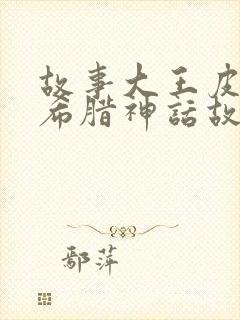 故事大王皮
希腊神話故
鄢萍